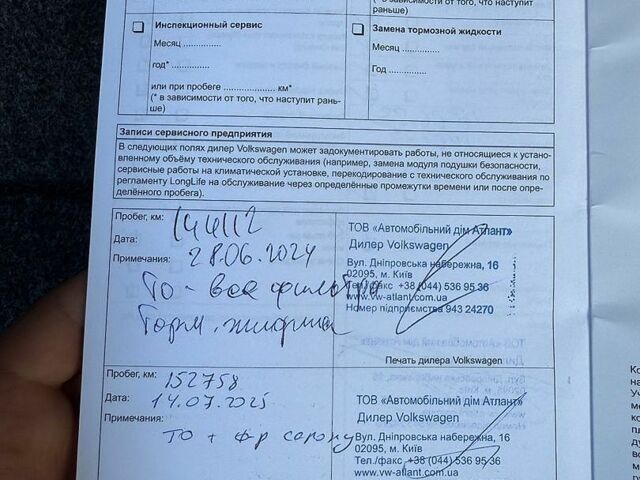 (* в зависимости от того, что наступит
Инспекционный сервис
Месяц ...............
год* ...............
или при пробеге ..................... км*
(* в зависимости от того, что наступит рань-
ше)
Замена тормозной жидкости
Месяц ...............
Год ...............
Записи сервисного предприятия
В следующих полях дилер Volkswagen может задокументировать работы, не относящиеся к уста-
новленному объёму технического обслуживания (например, замена модуля подушки безопасности,
сервисные работы на климатической установке, перекодирование с технического обслуживания по
регламенту LongLife на обслуживание через определённые промежутки времени или после опре-
делённого пробега).
Пробег, км: 144112
Дата: 28.06.2024
Примечания:
ТО - все фильтра
Торм. жидкость
ТОВ «Автомобільний дім Атлант»
Дилер Volkswagen
Вул. Дніпровська набережна, 16
02095, м. Київ
Тел./факс +38 (044) 536 95 36
www.vw-atlant.com.ua
Номер підприємства 943 24270
Печать дилера Volkswagen
Пробег, км: 152758
Дата: 14.07.2025
Примечания:
ТО + ф-р салону
ТОВ «Автомобільний дім Атлант»
Дилер Volkswagen
Вул. Дніпровська набережна, 16
02095, м. Київ
Тел./факс +38 (044) 536 95 36
www.vw-atlant.com.ua